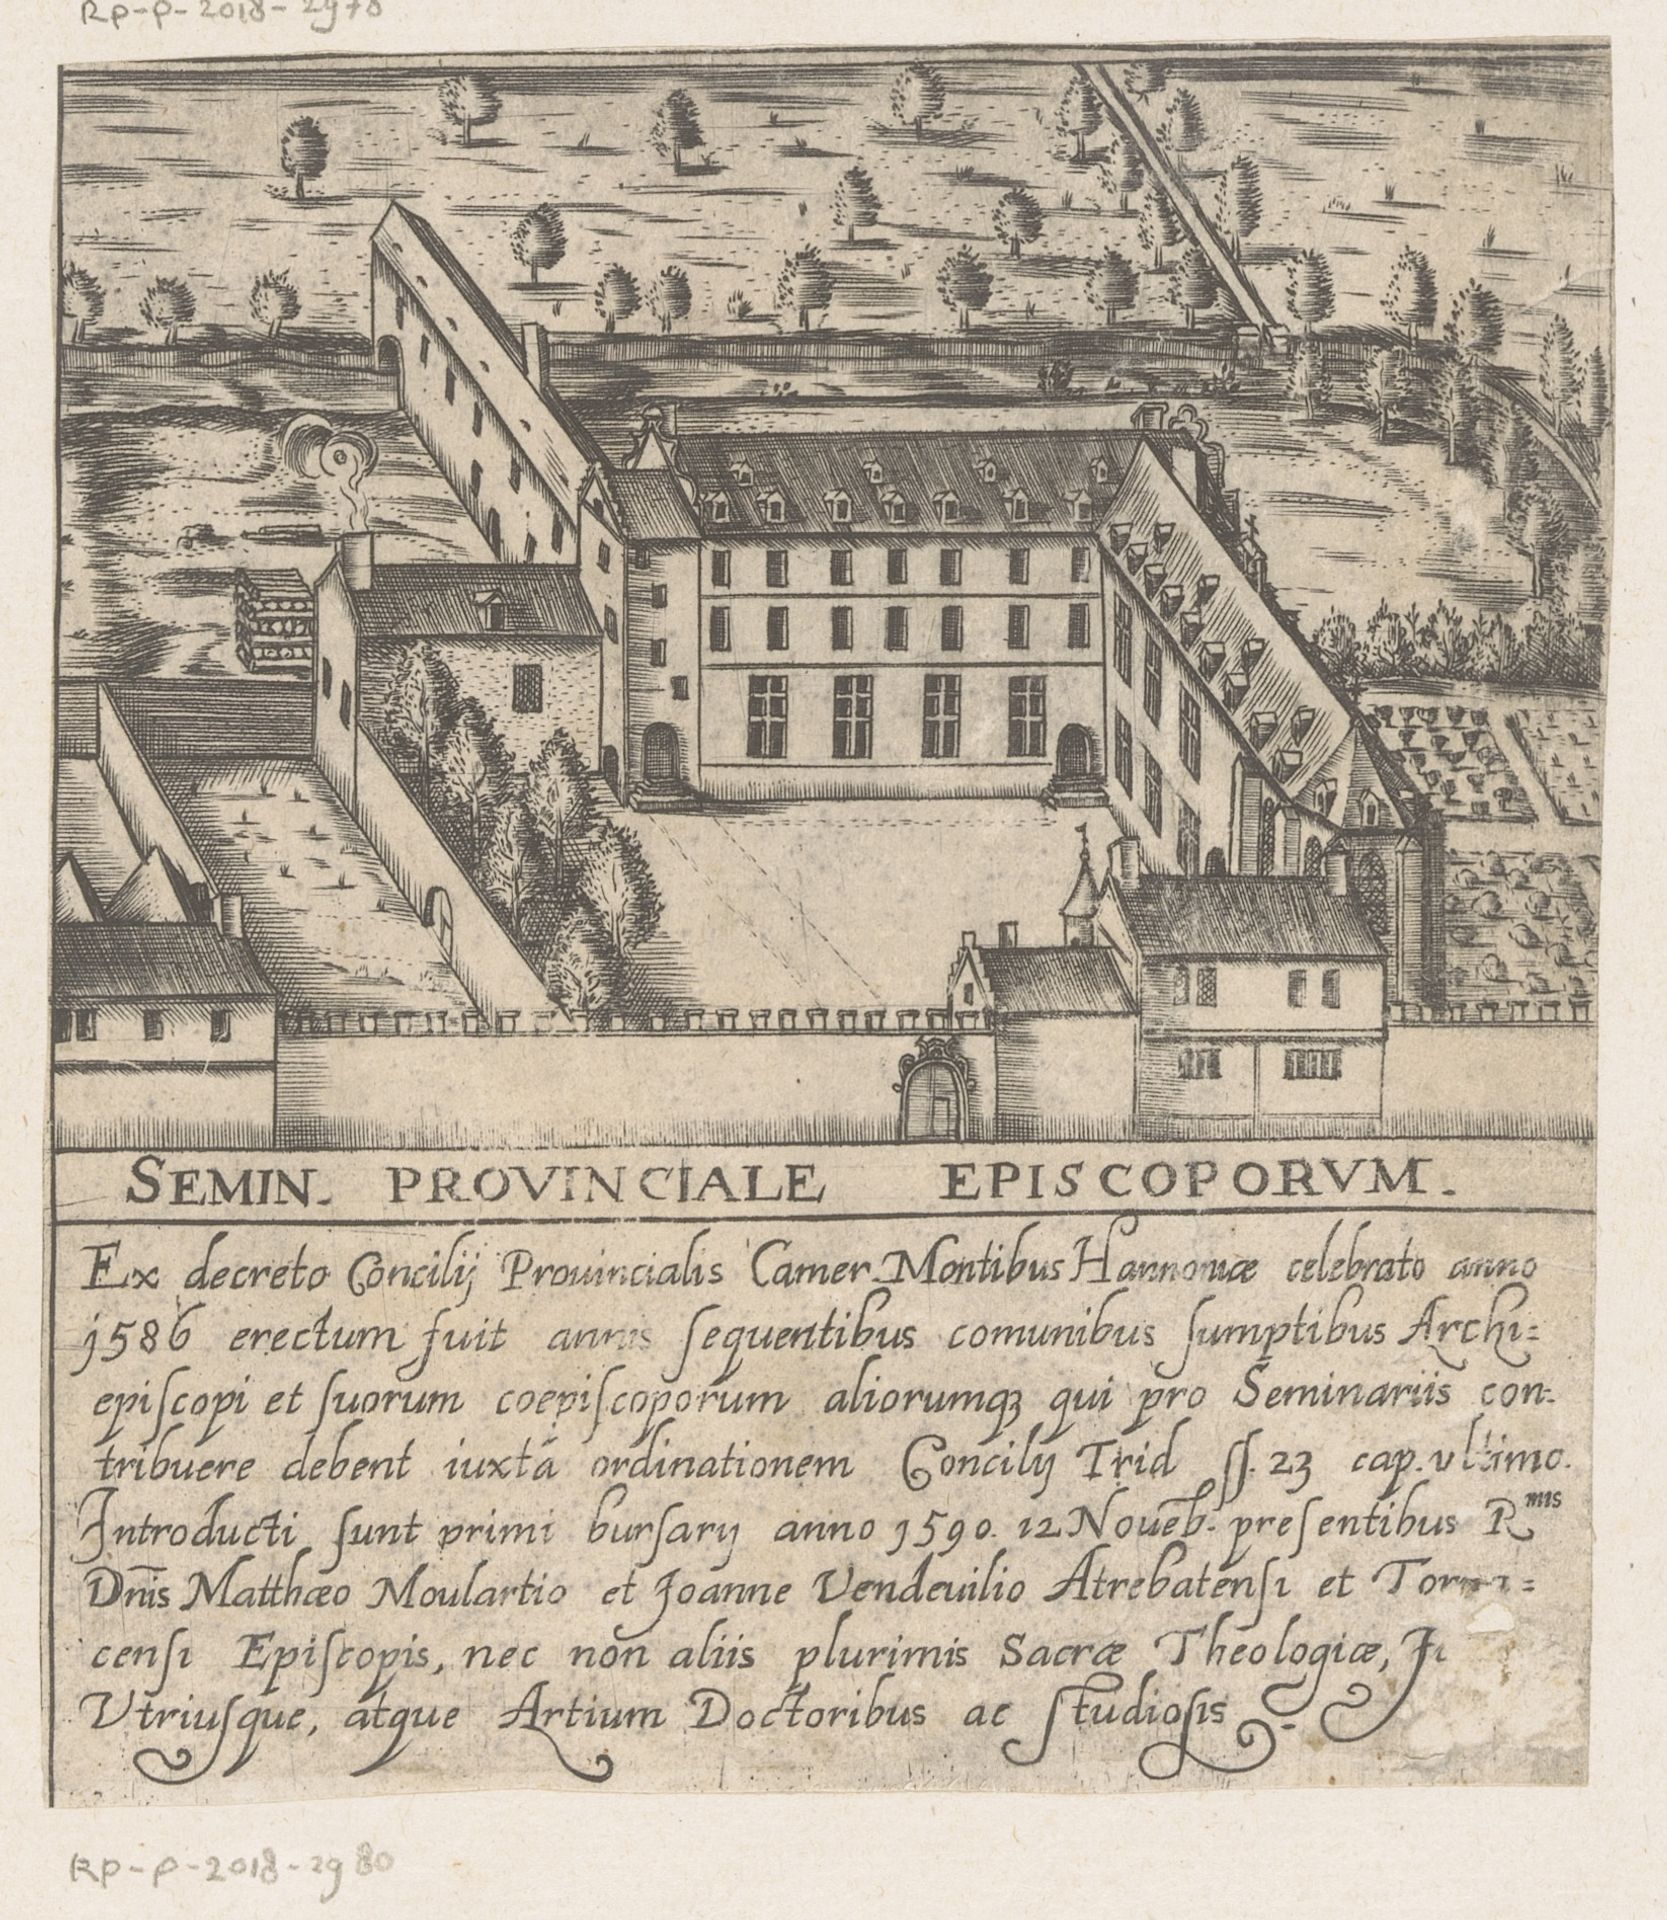 RP-P-2018-2978
SEMIN. PROVINCIALE EPISCOPORVM.
Ex decreto Concilij Prouincialis Camer. Montibus Hannoniæ celebrato anno
1586 erectum fuit annis ſequentibus comunibus ſumptibus Archi=
epiſcopi et ſuorum coepiſcoporum aliorumqꝫ qui pro Seminariis con=
tribuere debent iuxtà ordinationem Concilij Trid ſſ. 23 cap. vltimo.
Introducti ſunt primi burſarij anno 1590. 12 Noueb̄. preſentibus Rmis
Dn̄is Matthæo Moulartio et Joanne Vendeuilio Atrebatenſi et Torna=
cenſi Epiſcopis, nec non aliis plurimis Sacræ Theologiæ,
Vtriuſque, atque Artium Doctoribus ac ſtudioſis
RP-P-2018-2980